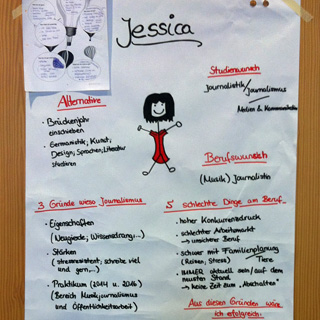 Jessica
Studienwunsch
Journalistik/Journalismus
Medien & Kommunikation
Alternative
• Brückenjahr
einschieben
• Germanistik, Kunst,
Design, Sprachen, Literatur
studieren
Berufswunsch
(Musik) Journalistin
3 Gründe wieso Journalismus
• Eigenschaften
(Neugierde, Wissensdrang,...)
• Stärken
(stressresistent, schreibe viel
und gern,...)
• Praktikum (2014 u. 2016)
(Bereich Musikjournalismus
und Öffentlichkeitsarbeit)
5 schlechte Dinge am Beruf
• hoher Konkurrenzdruck
• schlechter Arbeitsmarkt
→ unsicherer Beruf
• schwer mit Familienplanung
(Reisen, Stress) Tiere
• IMMER aktuell sein/auf dem
neusten Stand
→ keine Zeit zum "Abschalten"
Aus diesen Gründen wäre
ich erfolgreich: